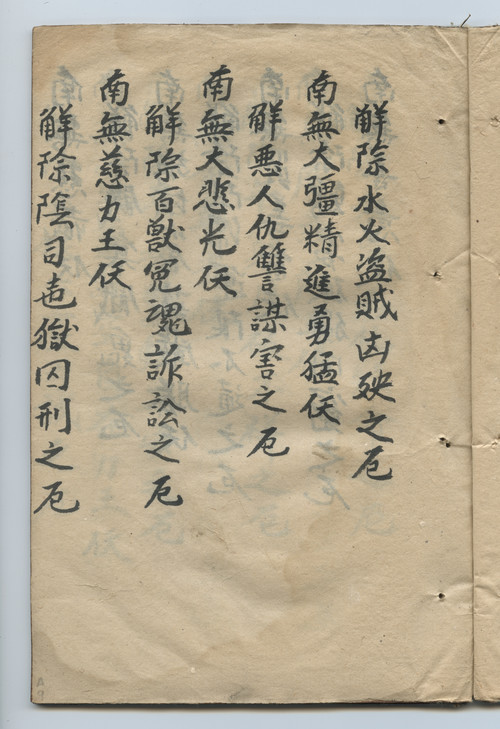 解除水火盗賊凶殃之厄
南無大彊精進勇猛仸
解悪人仇讐謀害之厄
南無大悲光仸
解除百獸冤魂訴訟之厄
南無慈力王仸
解除陰司地獄囚刑之厄